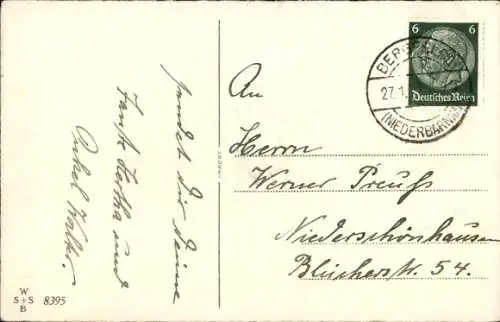 sendet Dir Deine
Tante Hertha und
Onkel Walter.
W
S+S 8395
B
An
Herrn
Werner Preuß
Niederschönhausen
Blücherstr. 54.
6 6
Deutsches Reich
27.1.
(NIEDERBARNIM)